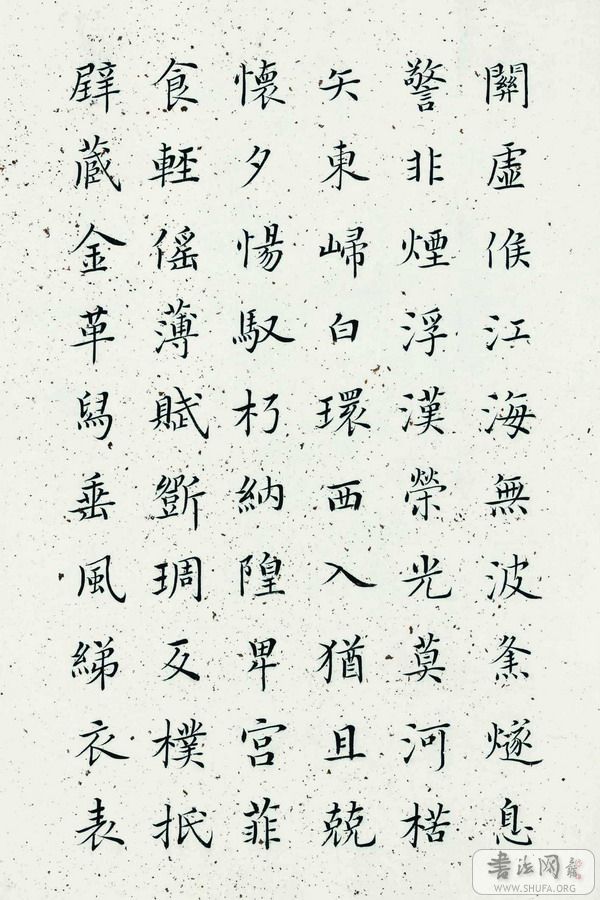 關虛候江海無波烽燧息
警非煙浮漢榮光莫河楛
矢東歸白環西入猶且兢
懷夕惕馭朽納隍卑宮菲
食輕徭薄賦斲琱反樸抵
璧藏金革舄垂風綈衣表
书法网
WWW.SHUFA.ORG